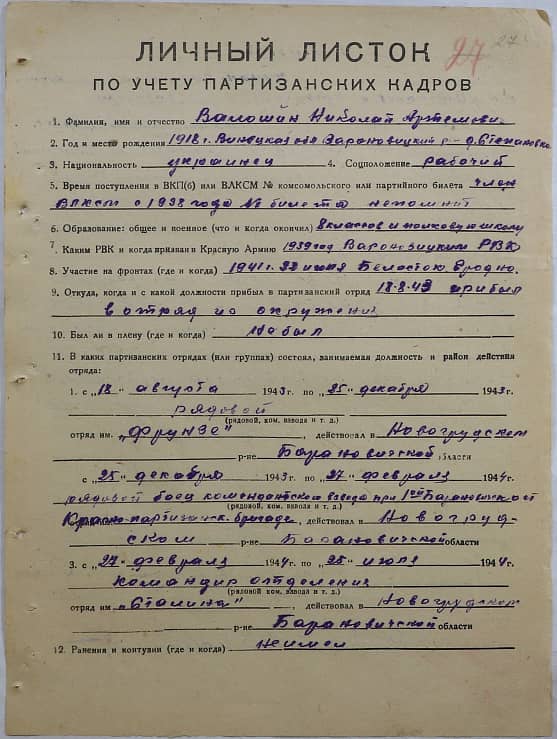 27 27
ЛИЧНЫЙ ЛИСТОК
ПО УЧЕТУ ПАРТИЗАНСКИХ КАДРОВ
1. Фамилия, имя и отчество Валошин Николай Артемович
2. Год и место рождения 1918 г. Винецкая обл Вароновицкий р-н д. Степановка
3. Национальность украинец 4. Соцположение рабочий
5. Время поступления в ВКП(б) или ВЛКСМ № комсомольского или партийного билета член
ВЛКСМ с 1938 года № билета непомнит
6. Образование: общее и военное (что и когда окончил) 8 классов и полковую школу
7. Каким РВК и когда призван в Красную Армию 1939 год Вароновицким РВК
8. Участие на фронтах (где и когда) 1941 г. 22 июня Белосток Гродно.
9. Откуда, когда и с какой должности прибыл в партизанский отряд 18-8-43 прибыл
в отряд из окружения
10. Был ли в плену (где и когда) Не был
11. В каких партизанских отрядах (или группах) состоял, занимаемая должность и район действия
отряда:
1. с „18" августа 1943 г. по „25" декабря 1943 г.
рядовой
(рядовой, ком. взвода и т. д.)
отряд им. „Фрунзе", действовал в Новогрудском
р-не Барановичской области
с „25" декабря 1943 г. по „27" февраля 1944 г.
рядовой боец комендантского взвода при 1ой Барановичской
(рядовой, ком. взвода и т. д.)
Красно-партизанск. бригаде, действовал в Новогруд-
ском р-не Барановичской области
3. с „27" февраля 1944 г. по „25" июля 1944 г.
командир отделения
(рядовой ком. взвода и т. д.)
отряд им „Сталина", действовал в Новогрудском
р-не Барановичской области
12. Ранения и контузии (где и когда) неимел